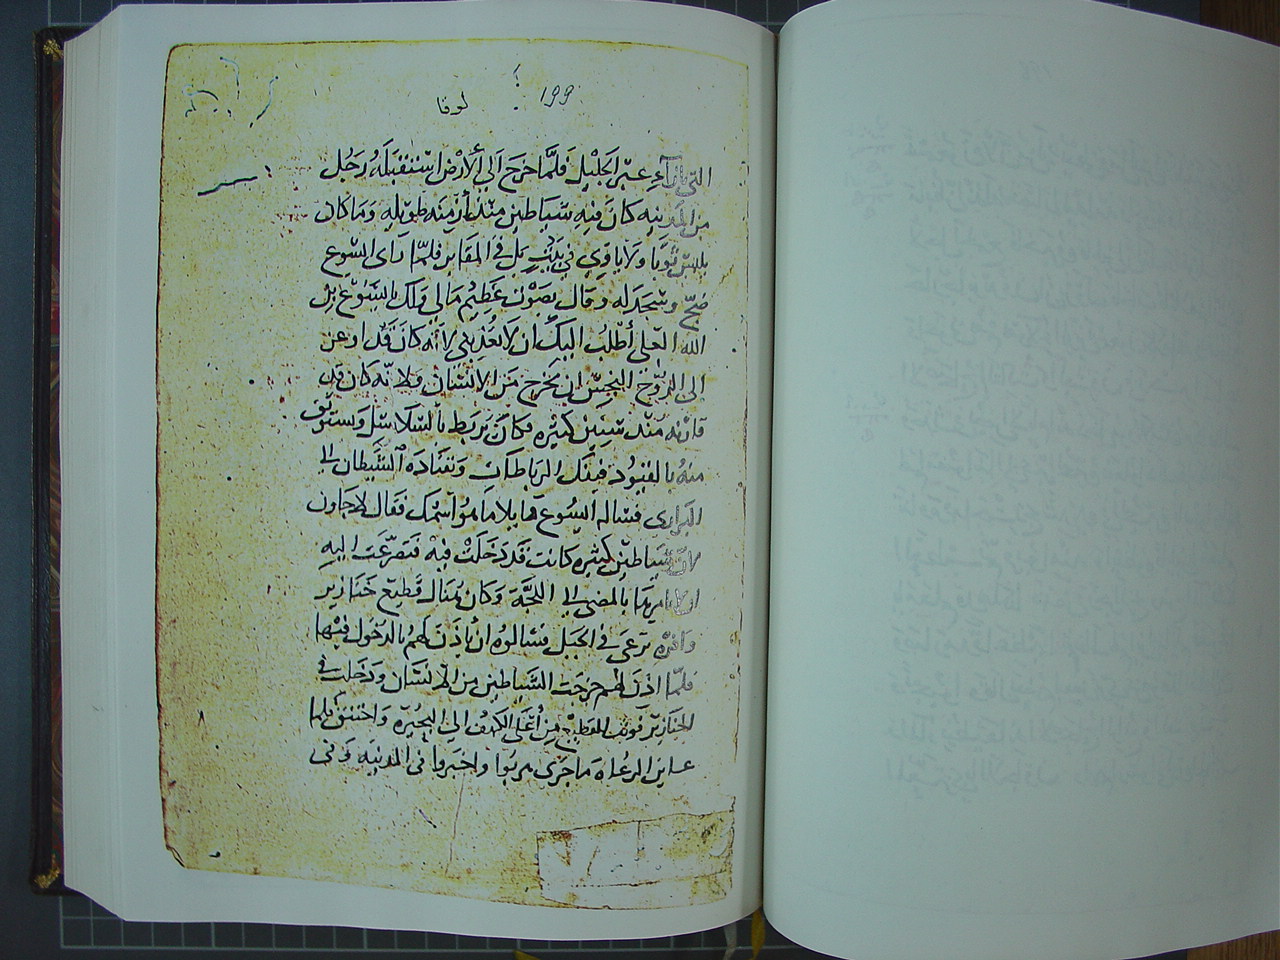 لوقا ١٩٩
التي بازآء عبر الجليل فلمّا خرج الي ألارْض استنقبله رَجُل
من المدينه كان فيه شياطين منذ أزمنه طويله وَمَا كان
يلبس ثوبًا ولا ياوي في بيت بل في المقابر فلمّا راى ايسوع
ضجّ وسجد له وقال بصوْت عَظِيم مالي ولك يا ايسوع بن
الله العلى أطلب اليك ان لا تعذبني لأنّه كان قد اوعز
الى الروّح النجس ان يخرج من الانسان ولانّه كان قد
قارنه منذ سنين كثيره فكان يربط بالسّلاسل ويستوثق
منهُ بالقيُود فيفك الرباطات ويقتاده الشيطان الى
البراري فساله ايسُوع قايلا ما هوَ اسْمك فقال لاجاون
لانّ شياطين كثيره كانت قد دَخَلتْ فيه فتضرّعت اليه
ان لا يامرها بالمضي الى اللجّة وكان هُناك قطيع خنازير
ترعى في الجبل فسالوُه ان ياذن لهم بالدخول فيها
فلمّا اذن لهم خرجَت الشياطين من الانسَان ودَخَلت في
الخنازير فوثب القطيع من أعلى الكهف الى البحيره واختنق فلما
عاين الرعُاه مَا جرَى هربُوا واخبروا في المدينه وَفى